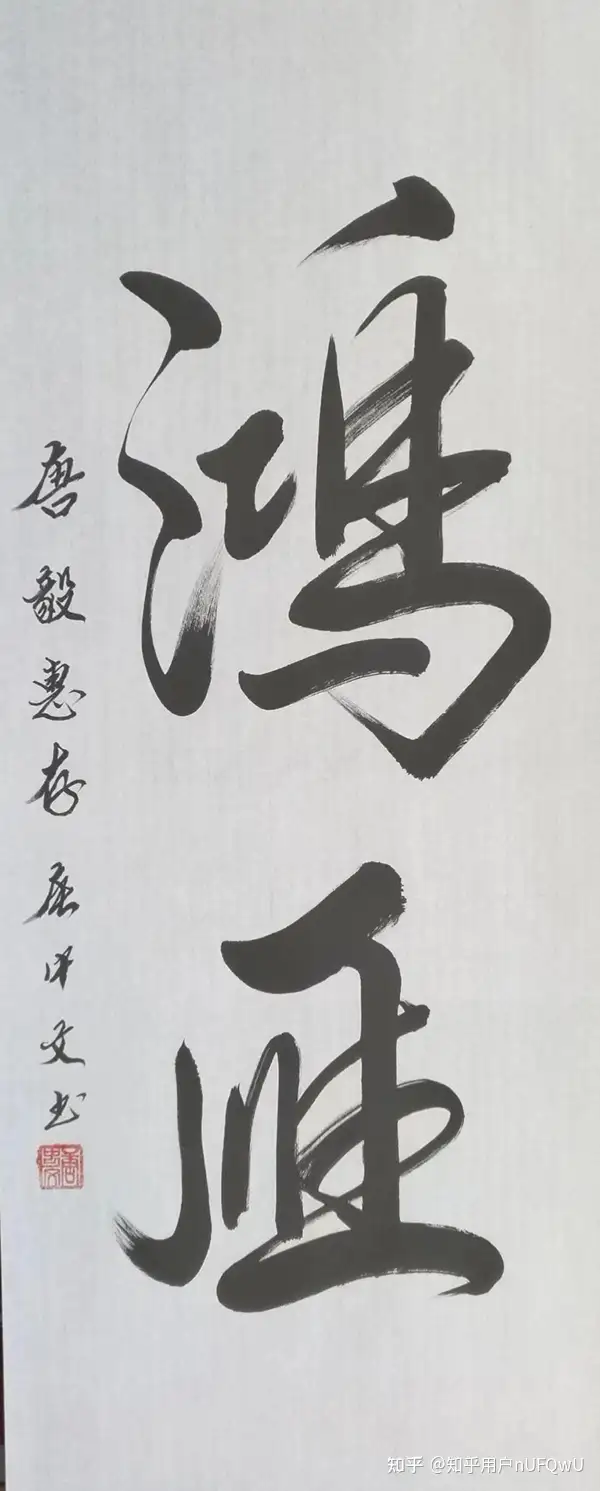 鸿雁
唐毅惠存 唐中文书
知乎 @知乎用户nUFQwU